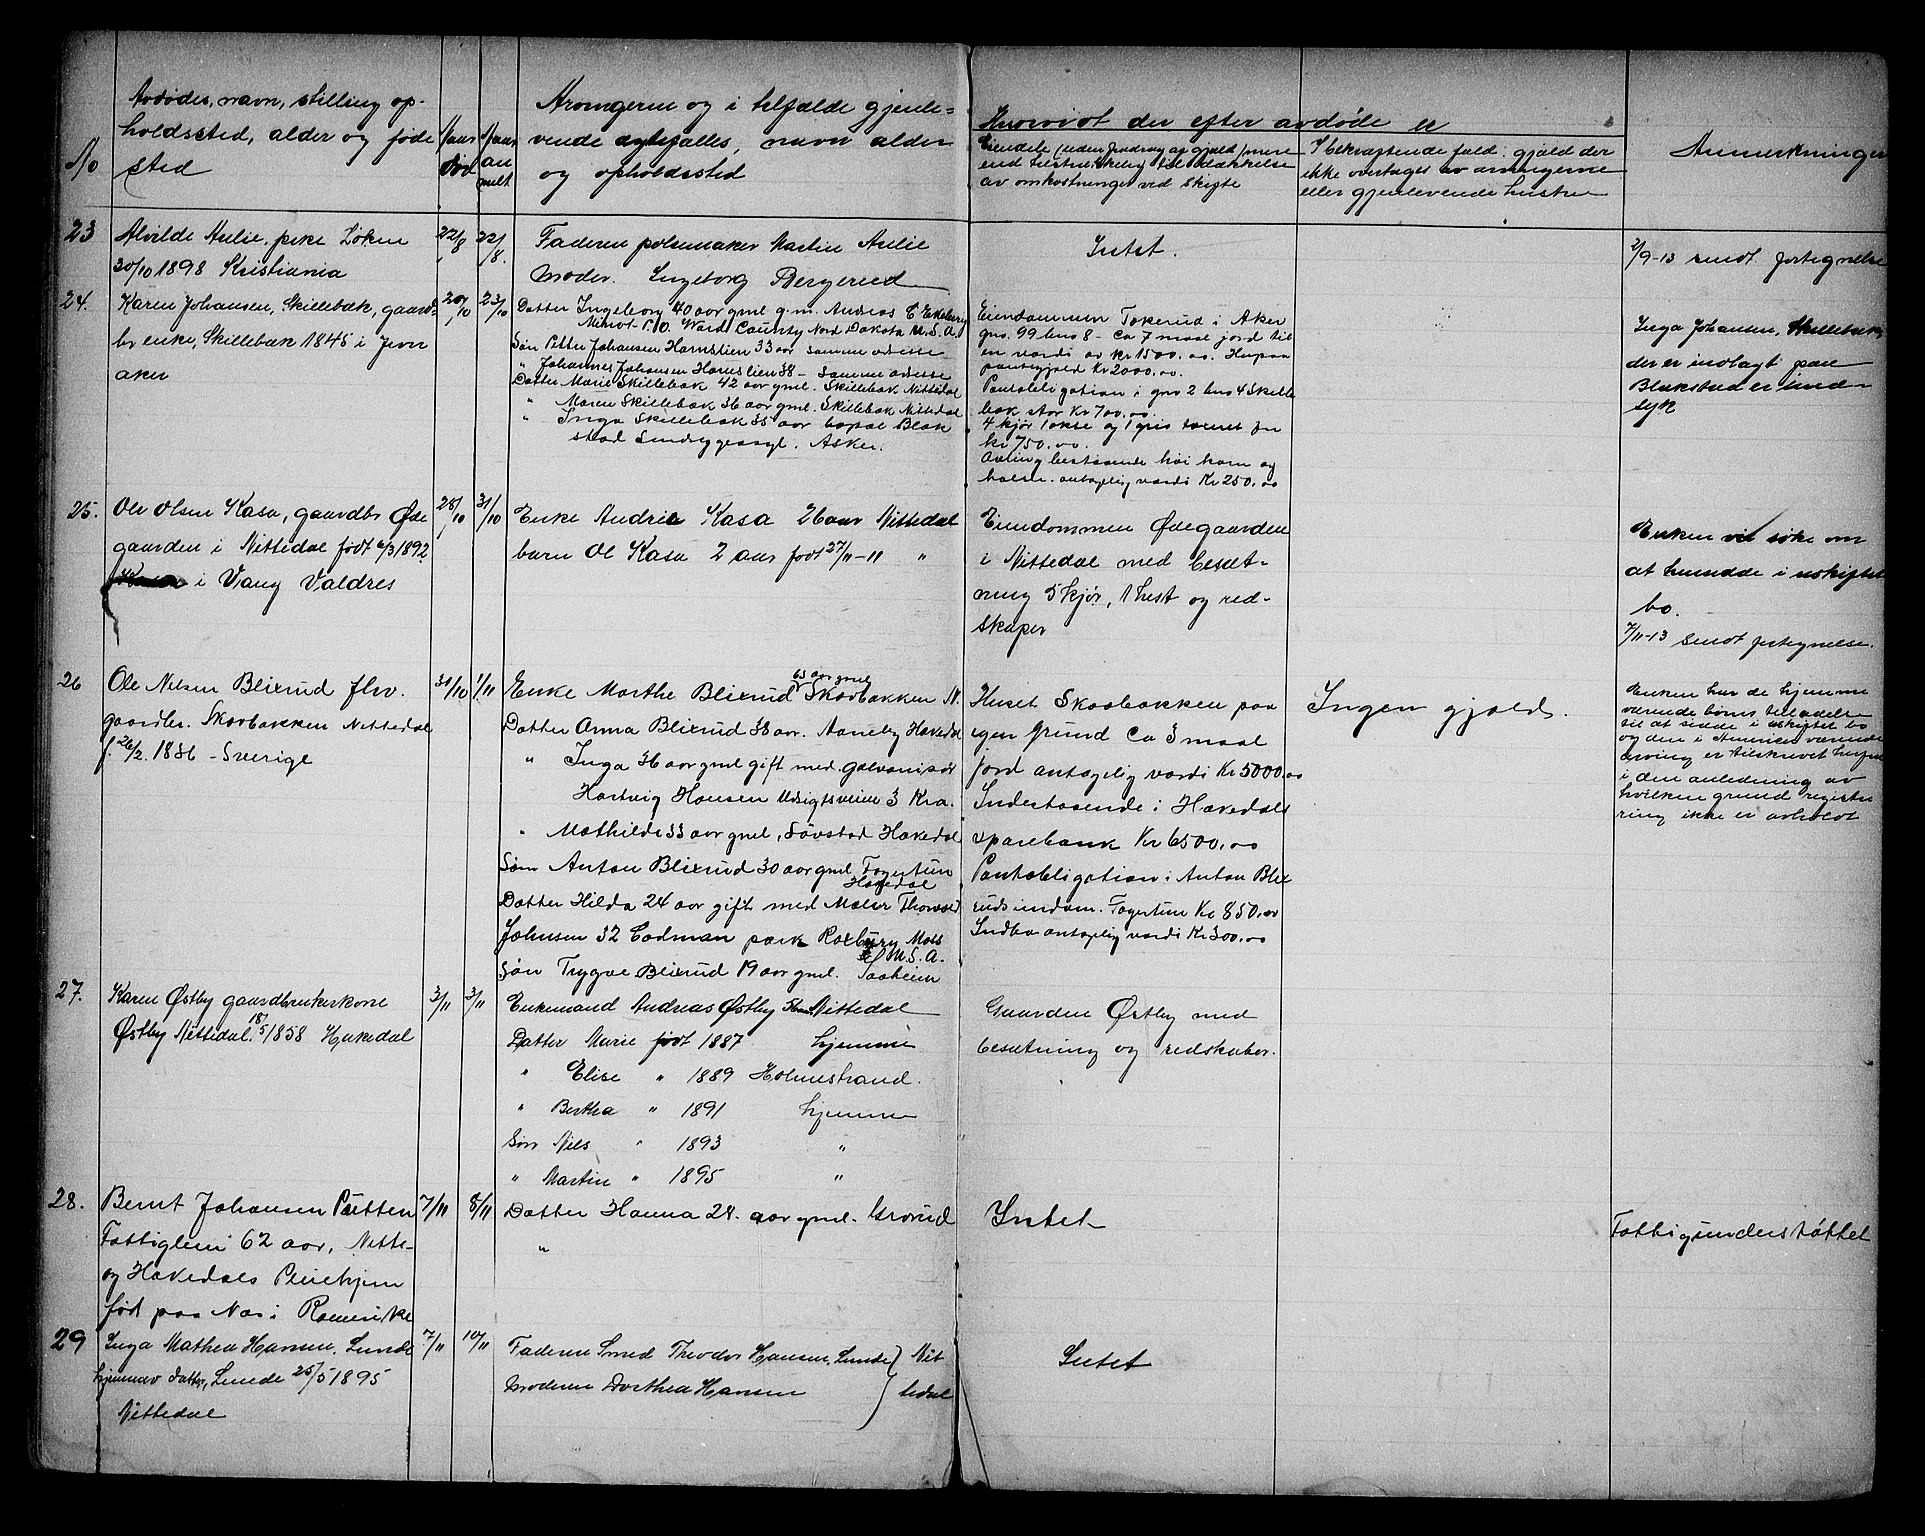 No
Avdødes, navn, stilling op-
holdssted, alder og føde
sted
Naar
død
Naar
an
melt
Arvingerne og i tilfælde gjenle-
vende egtefælles, navn alder
og opholdssted
Hvorvidt der efter avdøde er
Eiendele (uden fradrag af gjæld) mere
end tilstrækkelig til dækkelse
av omkostninger ved skifte
I bekræftende fald: gjæld der
ikke overtages av arvingerne
eller gjenlevende hustru
Anmerkninger
23
Alvilde Aulie, pike Løken
30/10 1898 Kristiania
22/8
22/8.
Faderen pølsemaker Martin Aulie
Moder. Ingeborg Bergerud
Intet.
2/9-13 sendt fortegnelse
24.
Karen Johansen, Skillebæk, gaard-
br enke, Skillebæk 1845 i Jevn
aker
20/10
23/10
Datter Ingeborg 40 aar gml g.m. Andreas C Ekeberg
Minot P.O. Ward County Nord Dakota U.S.A.
Søn Petter Johansen Harnslien 33 aar samme adresse
" Johannes Johansen Harnslien 38 - samme adresse
Datter Marie Skillebæk 42 aar gml. Skillebæk Nittedal
" Maren Skillebæk 36 aar gml. Skillebæk Nittedal
" Inga Skillebæk 35 aar bopæl Blak
stad Sindsygeasyl. Asker.
Eiendommen Tokerud i Aker
gns. 99 bns 8 - Ca 7 maal jord til
en værdi av kr 1500.00. Herpaa
pantegjæld Kr 2000.00.
Pantobligation i gns 2 bns 4 Skille
bæk stor Kr 700.00.
4 kjør 1 okse og 1 gris taxeret for
kr 750.00.
Avling bestaaende høi korn og
halm. antagelig værdi Kr 250.00
Inga Johansen, Skillebæk
der er indlagt paa
Blakstad er sinds-
syk
25.
Ole Olsen Kasa, gaardbr Øde
gaarden i Nittedal født 6/3 1892
i Vang Valdres
28/10
31/10
Enke Andrie Kasa 26 aar Nittedal
barn Ol Kasa 2 aar født 27/11-11 "
Eiendommen Ødegaarden
i Nittedal med besæt-
ning 5 kjør, 1 hest og red-
skaper
Enken vil søke om
at hensidde i uskiftet
bo.
7/11-13 sendt fortegnelse.
26
Ole Nelsen Blixrud fhv.
gaardbr. Skovbakken Nittedal
f. 26/2. 1836 - Sverige
31/10
1/11
65 aar gml
Enke Marthe Blixrud Skovbakken N.
Datter Anna Blixrud 38 aar. Aaneby Hakedal
" Inga 36 aar gml gift med galvanisør
Hartvig Hansen Utsigtsveien 3 Kra.
" Mathilde 33 aar gml, Løvstad Hakedal
Søn Anton Blixrud 30 aar gml Fagertun
Hakedal
Datter Hilda 24 aar gift med Maler Thorvald
Johnsen 32 Codman park Roxbury Mass
U.S.A.
Søn Trygve Blixrud 19 aar gml. Saaheim
Huset Skovbakken paa
egen Grund Ca 3 maal
jord antagelig værdi Kr 5000,00
Indestaaende i Hakedals
sparebank Kr 6500,00
Pantobligation i Anton Blix
ruds eiendom. Fagertun Kr 850,00
Indbo antagelig værdi Kr 300.00
Ingen gjæld.
Enken har de hjemme
værende børns tilladelse
til at sidde i uskiftet bo
og den i Amerika værende
arving er tilskrevet herfra
i den anledning av
hvilken grund registre
ring ikke er avholdt
27.
Karen Østby gaardbrukerkone
Østby Nittedal. 18/5 1858 Hakedal
3/11
3/11
Enkemand Andreas Østby Nittedal
Datter Marie født 1887 hjemme
" Elise " 1889 Holmestrand.
" Bertha " 1891 hjemme
Søn Nils " 1893 "
" Martin " 1895 "
Gaarden Østby med
besætning og redskaber.
28.
Bernt Johansen Putten
Fattiglem 62 aar, Nitte-
og Hakedals Pleiehjem
født paa Næs i Romerike
7/11
8/11
Datter Hanna 24. aar gml. Grorud
"
Intet
Fattigunderstøttet
29
Inga Mathea Hansen, Lunde
hjemmev datter, Lunde 25/5 1895
Nittedal
7/11
10/11
Faderen Smed Theodor Hansen, Lunde } Nit
Moderen Dorthea Hansen } tedal
Intet